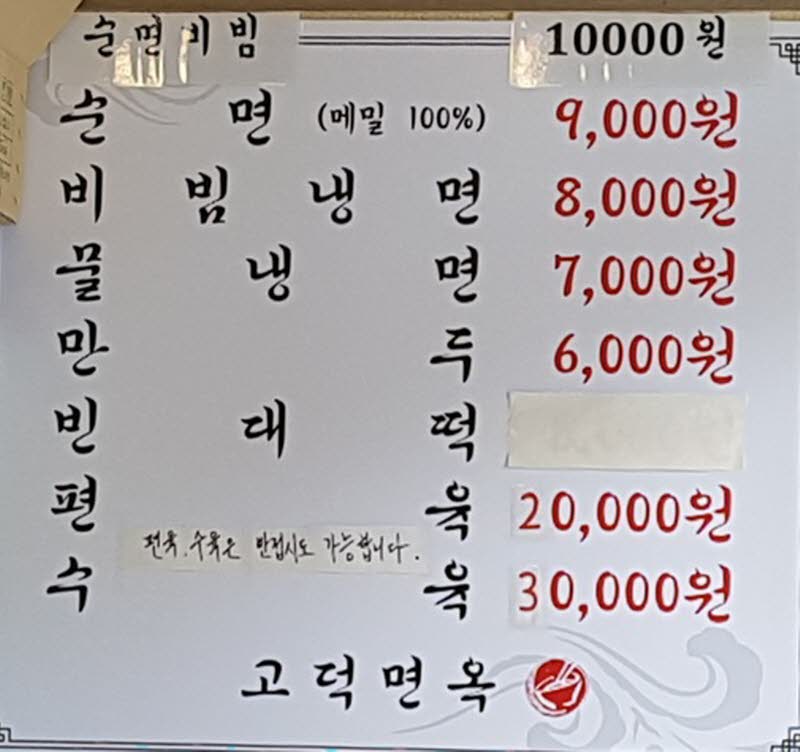 순면비빔 10000원
순면 (메밀 100%) 9,000원
비빔냉면 8,000원
물냉면 7,000원
만두 6,000원
빈대떡
편육 20,000원
편육.수육은 반접시도 가능합니다.
수육 30,000원
고덕면옥